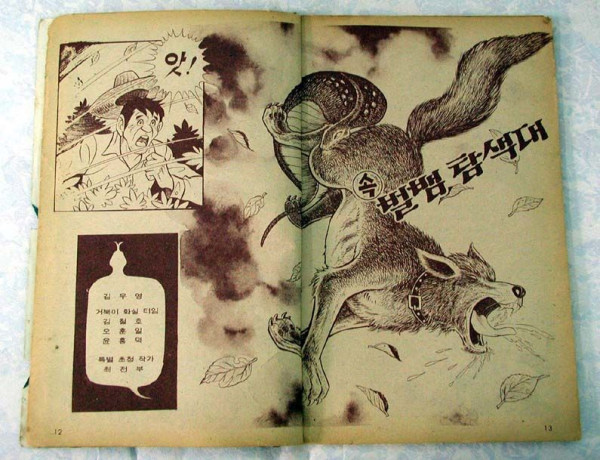 앗!
속
별뱀 탐색대
김우영
거북이 화실 티임
김철호
오훈일
윤홍덕
특별 초청 작가
최전부
12
13